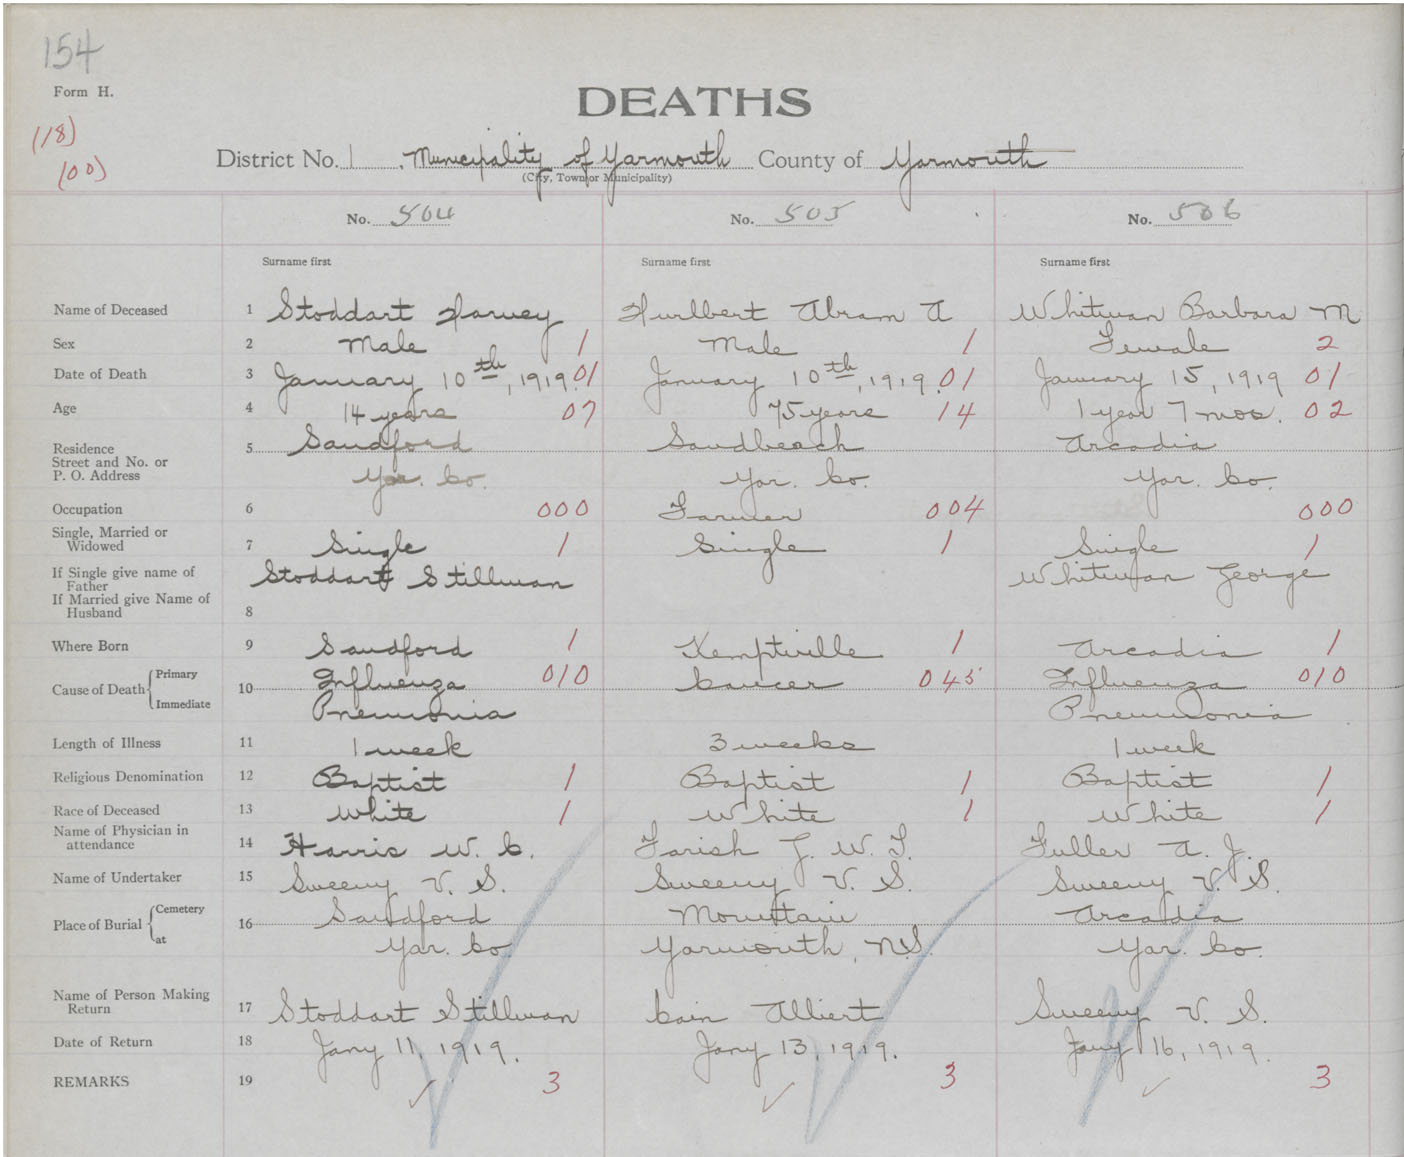 154
Form H.
DEATHS
(18)
(00)
District No. 1 Municipality of Yarmouth County of Yarmouth
(City, Town or Municipality)
No. 504 No. 505 No. 506
Surname first Surname first Surname first
Name of Deceased 1 Stoddart Harvey Hurlbert Abram A Whitman Barbara M
Sex 2 Male 1 Male 1 Female 2
Date of Death 3 January 10th, 1919. 01 January 10th, 1919. 01 January 15, 1919 01
Age 4 14 years 07 75 years 14 1 year 7 mos. 02
Residence 5 Sandford Sandbeach Arcadia
Street and No. or
P. O. Address Yar. Co. Yar. Co. Yar. Co.
Occupation 6 000 Farmer 004 000
Single, Married or
Widowed 7 Single 1 Single 1 Single 1
If Single give name of
Father Stoddart Stillman Whitman George
If Married give Name of
Husband 8
Where Born 9 Sandford 1 Kemptville 1 Arcadia 1
Cause of Death Primary 10 Influenza 010 Cancer 045 Influenza 010
Immediate Pneumonia Pneumonia
Length of Illness 11 1 week 3 weeks 1 week
Religious Denomination 12 Baptist 1 Baptist 1 Baptist 1
Race of Deceased 13 White 1 White 1 White 1
Name of Physician in
attendance 14 Harris W. C. Farish J. W. T. Fuller A. J.
Name of Undertaker 15 Sweeny V. S. Sweeny V. S. Sweeny V. S.
Place of Burial Cemetery 16 Sandford Mountain Arcadia
at Yar. Co. Yarmouth, N.S. Yar. Co.
Name of Person Making
Return 17 Stoddart Stillman Cain Albert Sweeny V. S.
Date of Return 18 Jany 11, 1919. Jany 13, 1919. Jany 16, 1919.
REMARKS 19 3 3 3